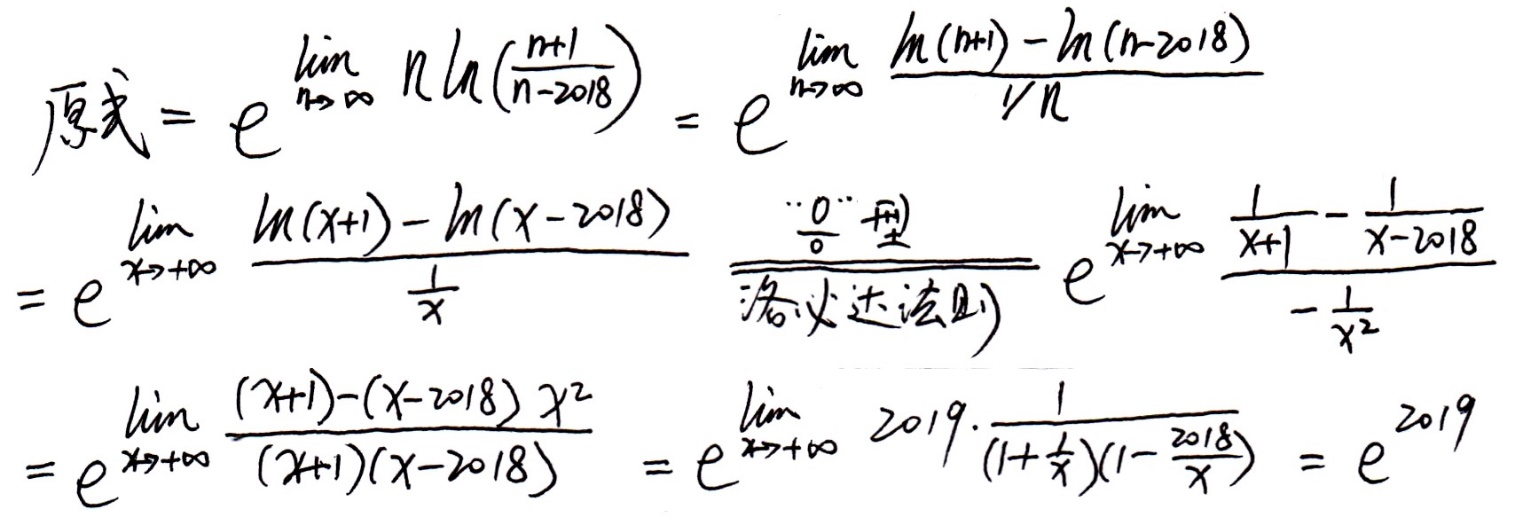 原式 = e^{lim_{n→∞} n ln(\frac{n+1}{n-2018})} = e^{lim_{n→∞} \frac{ln(n+1) - ln(n-2018)}{1/n}}
= e^{lim_{x→+∞} \frac{ln(x+1) - ln(x-2018)}{\frac{1}{x}}} \xlongequal[洛必达法则]{"\frac{0}{0}"型} e^{lim_{x→+∞} \frac{\frac{1}{x+1} - \frac{1}{x-2018}}{-\frac{1}{x^2}}}
= e^{lim_{x→+∞} \frac{(x+1)-(x-2018) x^2}{(x+1)(x-2018)}} = e^{lim_{x→+∞} 2019 · \frac{1}{(1+\frac{1}{x})(1-\frac{2018}{x})}} = e^{2019}